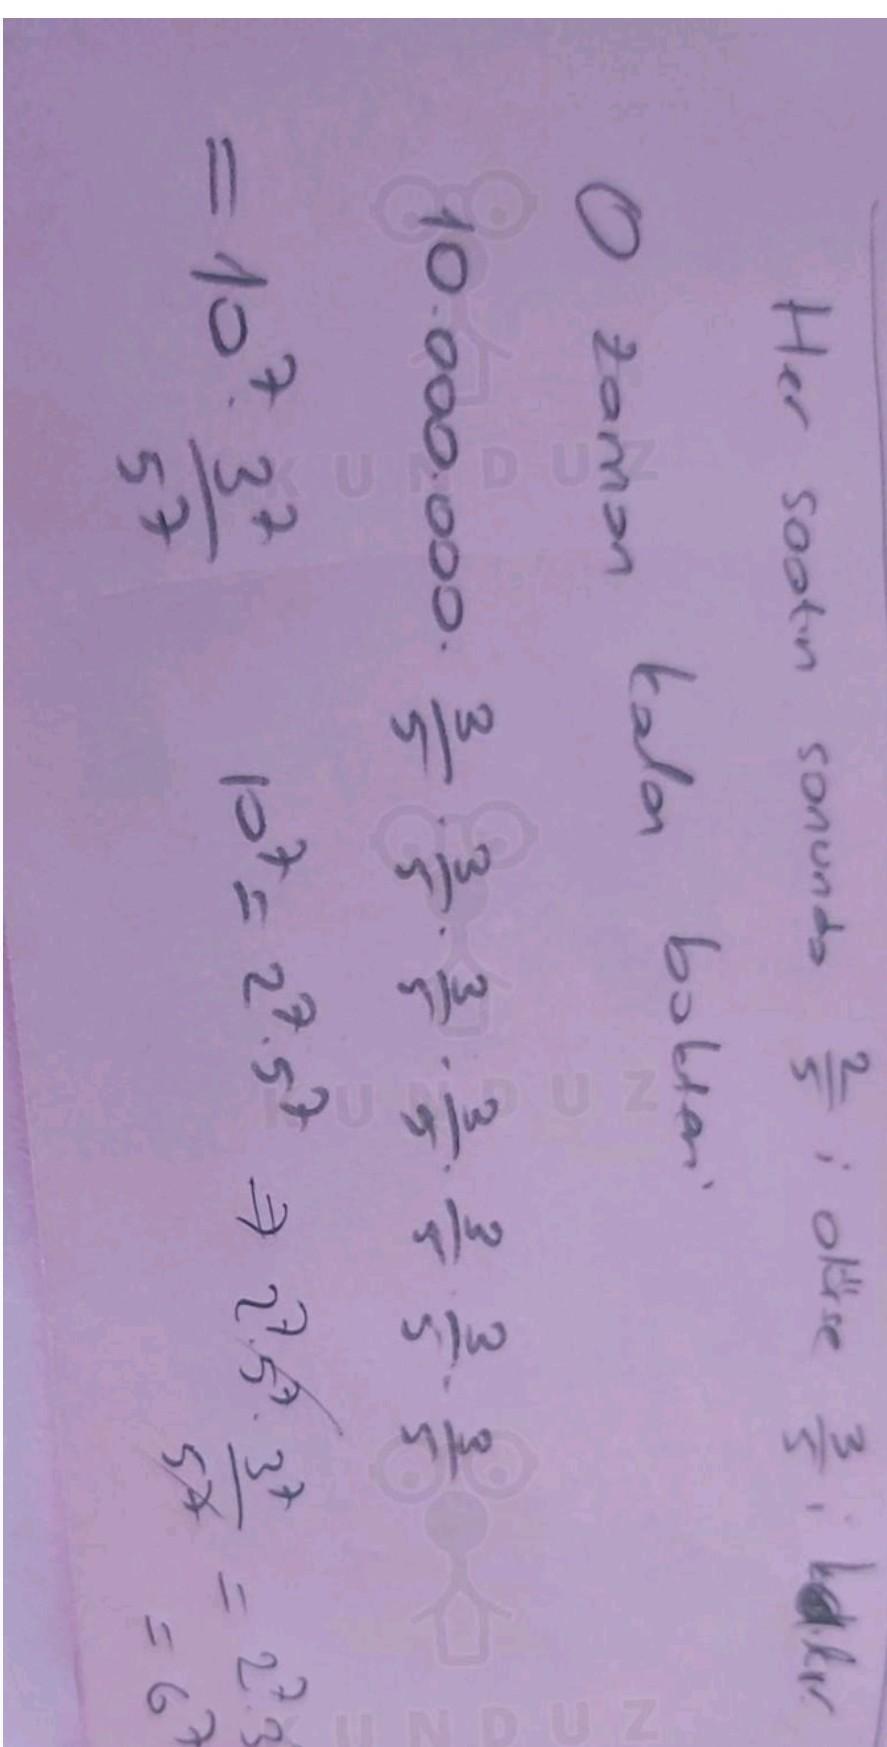 Her saatin sonunda 2/5 i ölürse 3/5 i kalır.
O zaman kalan bakteri
10.000.000 . 3/5 . 3/5 . 3/5 . 3/5 . 3/5 . 3/5 . 3/5
= 10⁷ . 3⁷/5⁷ 10⁷ = 2⁷ . 5⁷ ⇒ 2⁷ . 5⁷ . 3⁷/5⁷ = 2⁷ . 3
= 6⁷
KUNDUZ
KUNDUZ
KUNDUZ